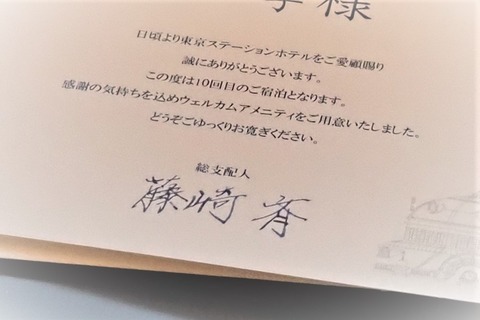 様
日頃より東京ステーションホテルをご愛顧賜り
誠にありがとうございます。
この度は10回目のご宿泊となります。
感謝の気持ちを込めウェルカムアメニティをご用意いたしました。
どうぞごゆっくりお寛ぎください。
総支配人
藤崎 斉